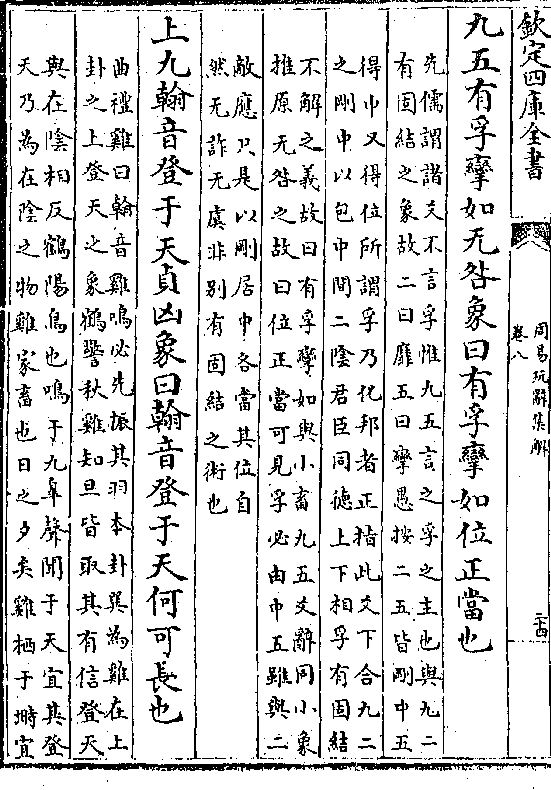 欽定四庫全書
周易玩辭集解
卷八
二十四
九五有孚攣如无咎象曰有孚攣如位正當也
先儒謂諸爻不言孚惟九五言之孚之主也與九二
有固結之象故二曰靡五曰攣愚按二五皆剛中五
得中又得位所謂孚乃化邦者正指此爻下合九二
之剛中以包中間二陰君臣同德上下相孚有固結
不解之義故曰有孚攣如與小畜九五爻辭同小象
推原无咎之故曰位正當可見孚必由中五雖與二
敵應只是以剛居中各當其位自
然无詐无虞非別有固結之術也
上九翰音登于天貞凶象曰翰音登于天何可長也
曲禮雞曰翰音雞鳴必先振其羽本卦巽為雞在上
卦之上登天之象鶴警秋雞知旦皆取其有信登天
與在陰相反鶴陽鳥也鳴于九皋聲聞于天宜其登
天乃為在陰之物雞家畜也日之夕矣雞栖于塒宜